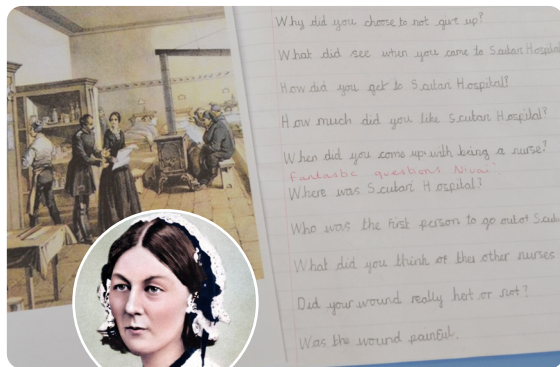 Why did you choose to not give up?
What did see when you came to Scutari Hospital
How did you get to Scutari Hospital?
How much did you like Scutari Hospital?
When did you come up with being a nurse?
Fantastic questions
Where was Scutari Hospital?
Who was the first person to go out of Scuta
What did you think of the other nurses
Did your wound really hot or not?
Was the wound painful.